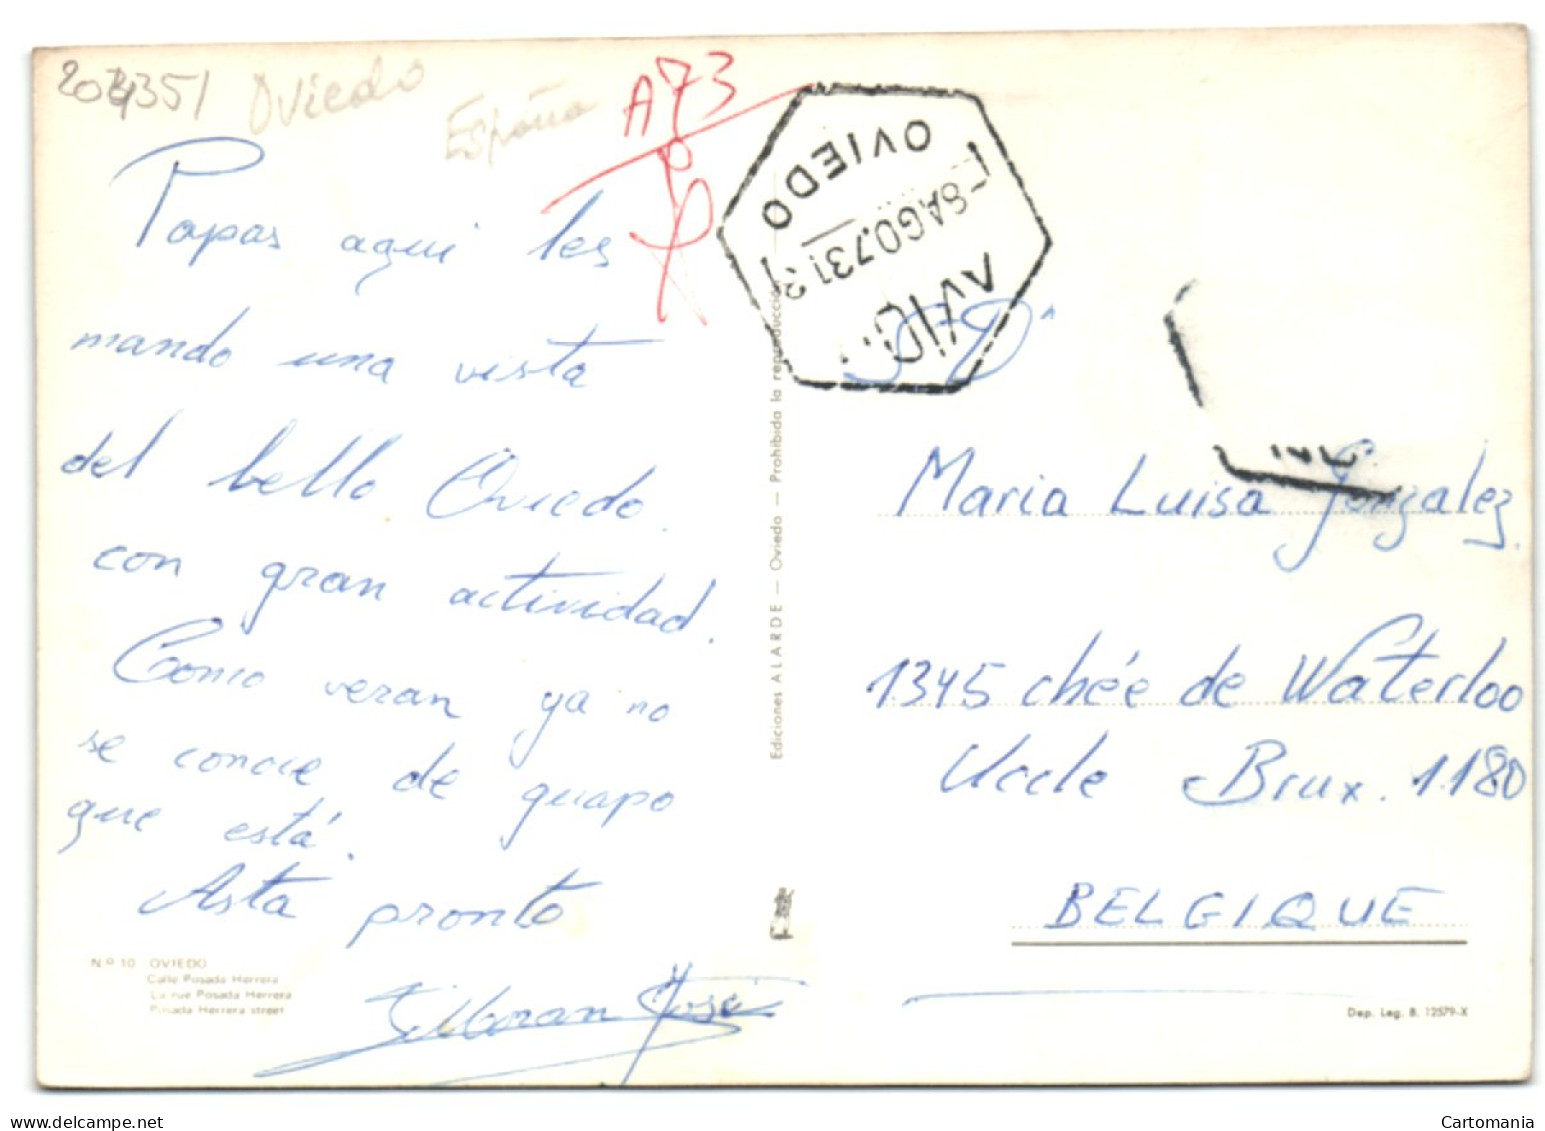 204351 Oviedo
España
A73
Papas aqui les
mando una vista
del bello Oviedo.
con gran actividad.
Como veran ya no
se conoce de guapo
que está.
Asta pronto
José
Nº 10 OVIEDO
Calle Posada Herrera
La rue Posada Herrera
Posada Herrera street
Ediciones ALARDE — Oviedo — Prohibida la reproducción
OVIEDO
8 AGO.73
Maria Luisa Gonzalez
1345 chée de Waterloo
Uccle Brux. 1180
BELGIQUE
Dep. Leg. B. 12579-X
Cartomania